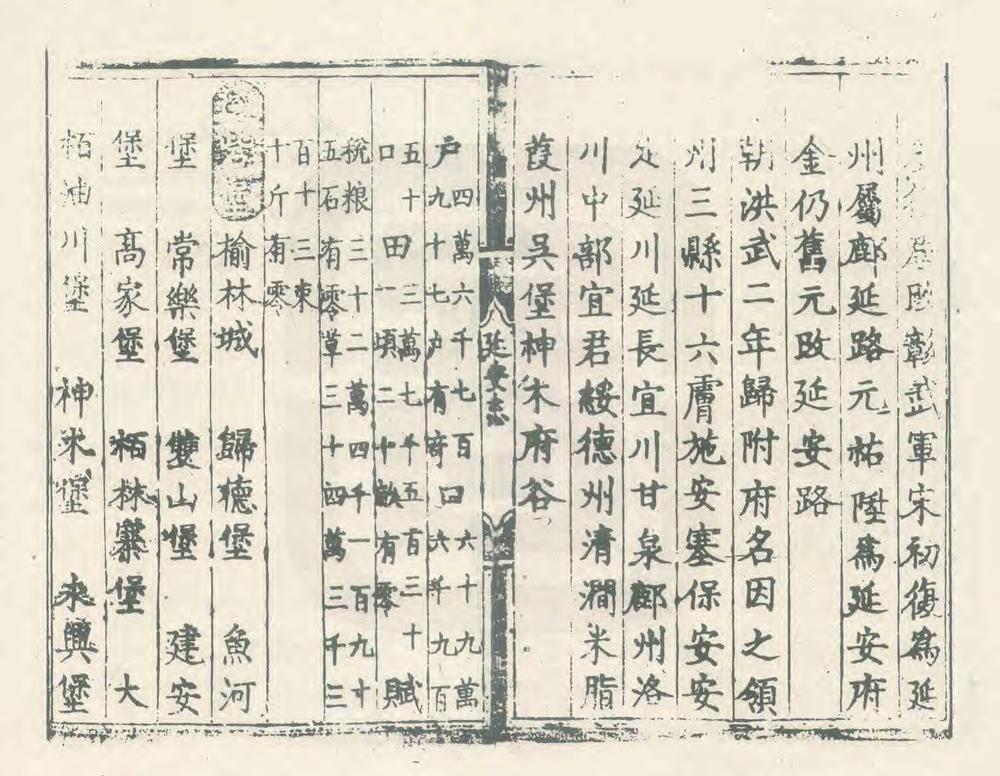 唐改彰武軍宋初復為延
州屬鄜延路元祐陞為延安府
金仍舊元改延安路
朝洪武二年歸附府名因之領
州三縣十六膚施安塞保安安
定延川延長宜川甘泉鄜州洛
川中部宜君綏德州清澗米脂
葭州吳堡神木府谷
延安志
戶四萬六千七百九十七户有奇口六十九萬六千九百
五十口田三萬七千五百三十一頃二十畝有零賦
税粮三十二萬四千一百九十五石有零草三十四萬三千三
百十三束十斤有零
榆林城 歸德堡 魚河
堡 常樂堡 雙山堡 建安
堡 高家堡 栢林寨堡 大
栢油川堡 神木堡 永興堡